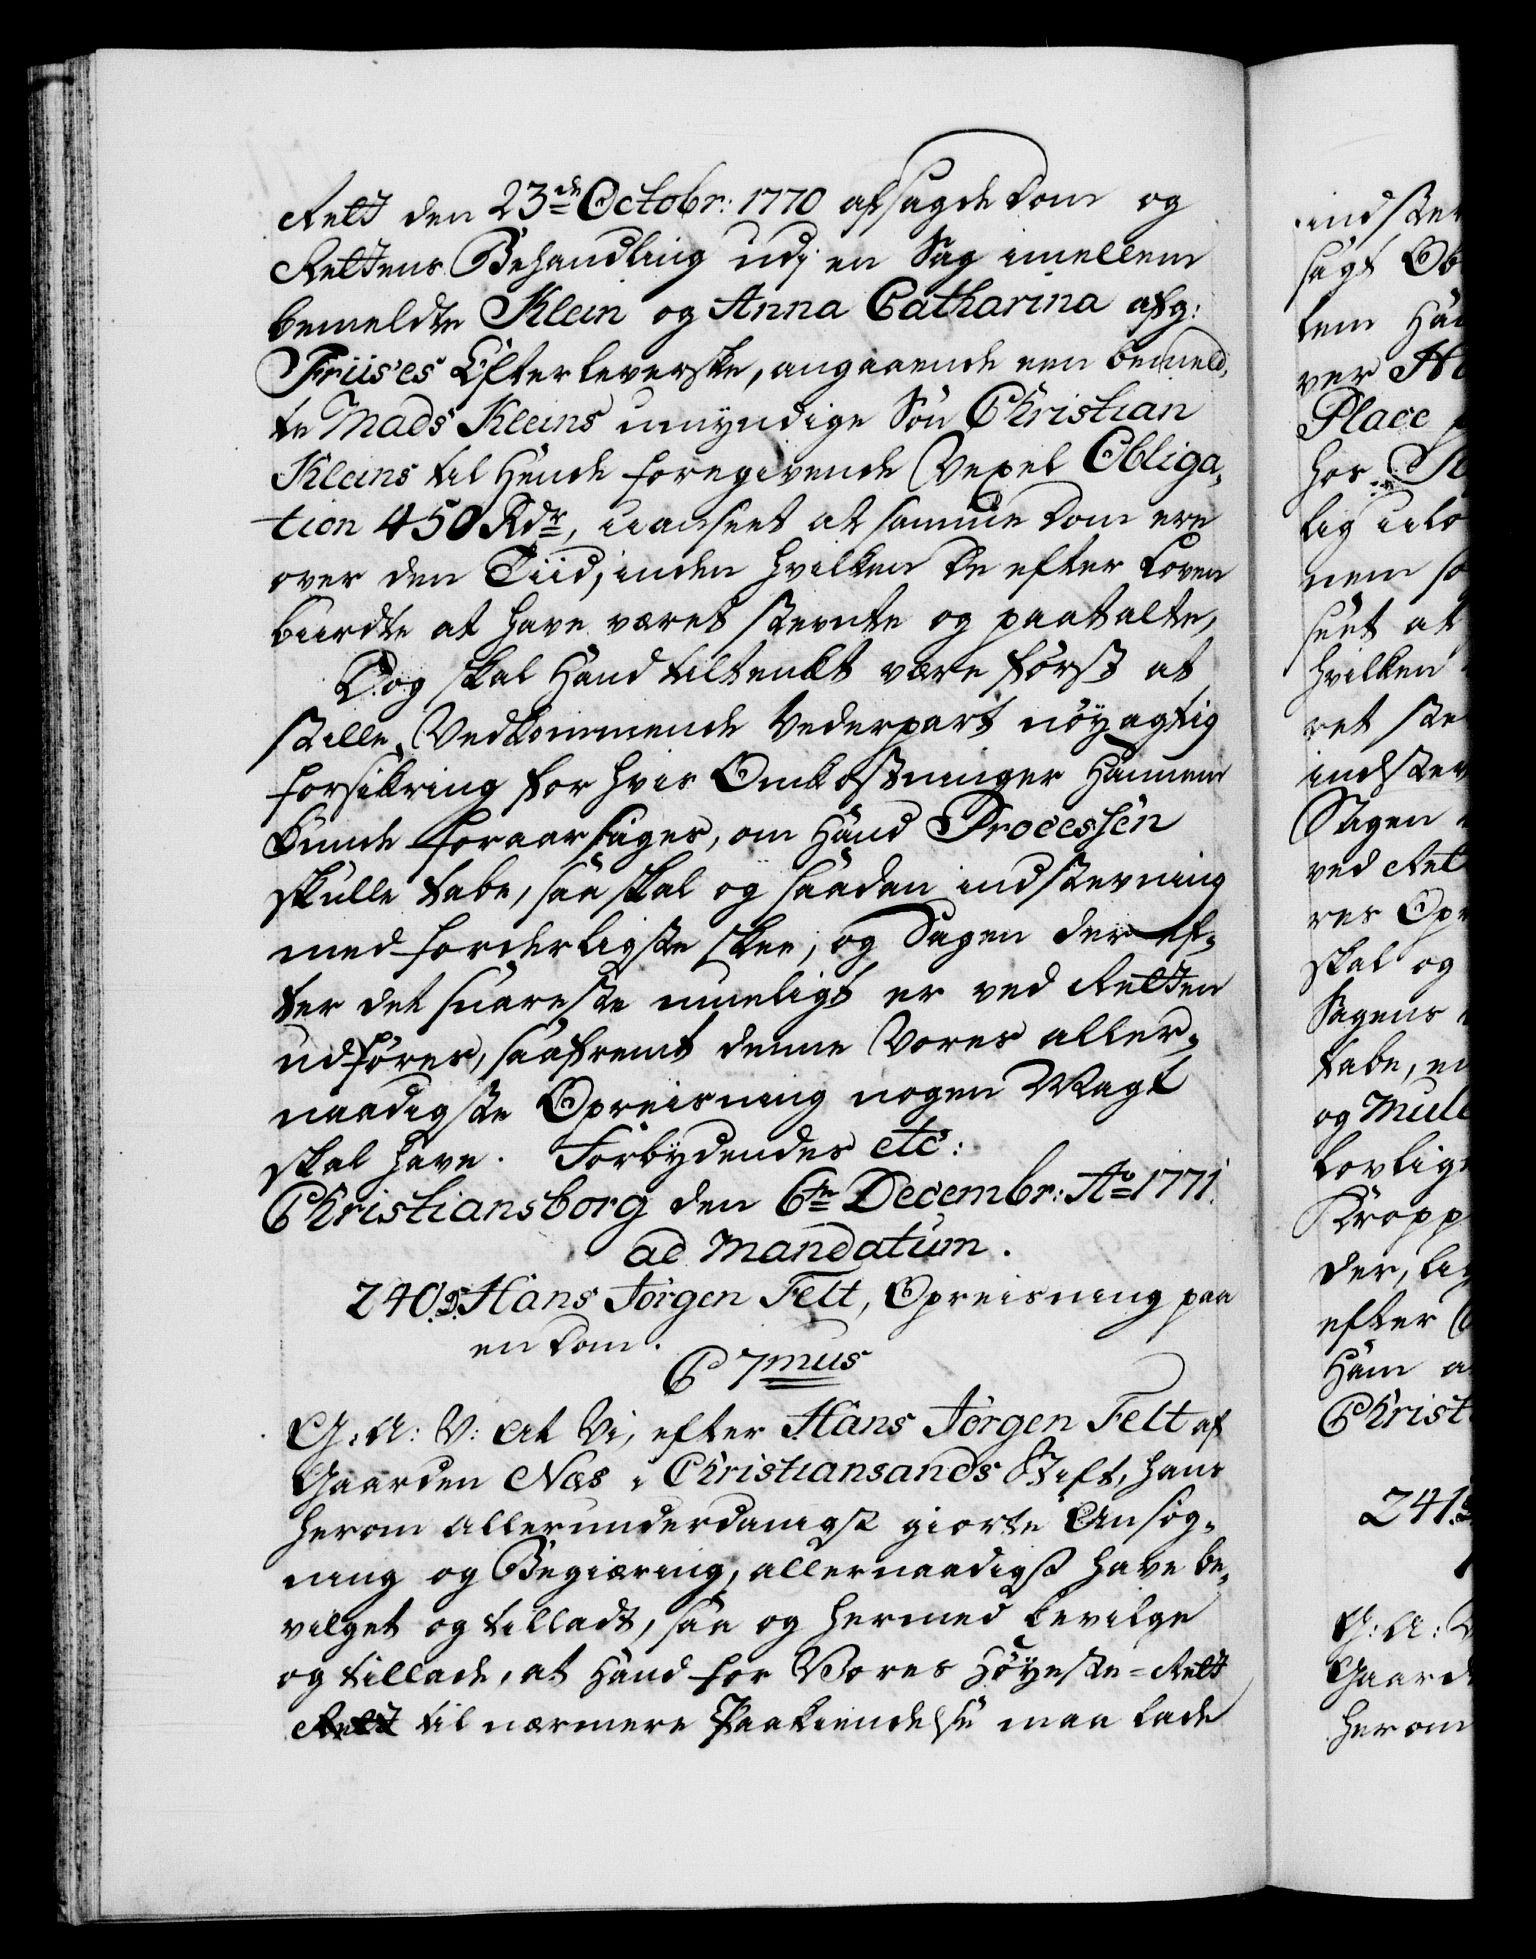 Rett den 23de Octobr: 1770 afsagde Dom og
Rettens Behandling udj en Sag imellem
bemeldte Klein og Anna Catharina afg:
Friis'es Efterleverske, angaaende een bemeld,
te Mads Kleins umyndige Søn Christian
Kleins til Hende foregivende Vexel Obliga,
tion 450 Rdr, uanseet at samme Dom ere
over den Tiid, inden hvilken De efter Loven
burdte at have været stevnte og paatalte,
Dog skal Hand tiltenkt være først at
stille Vedkommende Vederpart nöyagtig
forsikring for hvis Omkostninger Hannem
kunde foraarsages, om Hand Processen
skulle tabe, saa skal og saadan indstevning
med forderligste skee, og Sagen der ef,
ter det snareste mueligt er ved Retten
udføres, saafremt denne Vores aller,
naadigste Opreisning nogen Magt
skal have. Forbydendes etc:
Christiansborg den 6te Decembr: Ao 1771.
ad Mandatum.
240. Hans Jörgen Felt, Opreisning paa
en Dom.
C 7mus
G: A: V: At Vi, efter Hans Jörgen Felt af
Gaarden Næs i Christiansands Stift, hans
herom allerunderdanigst giorte Ansøg,
ning og Begiæring, allernaadigst have be,
vilget og tilladt, saa og hermed bevilge
og tillade, at Hand for Vores Höyeste-Rett
Rett til nærmere Paakiendelse maa lade
indstev
sagt Ob
tem Han
ver
Place
hos
lig
nem
seet at
hvilken
ret ste
indstev
Sagen
ved Ret
res Opr
skal og
Sagens
tabe, en
og Mul
lovlig
Kropp
der, lig
efter
Ham a
Christ
241.
G: A: V
Gaard
herom